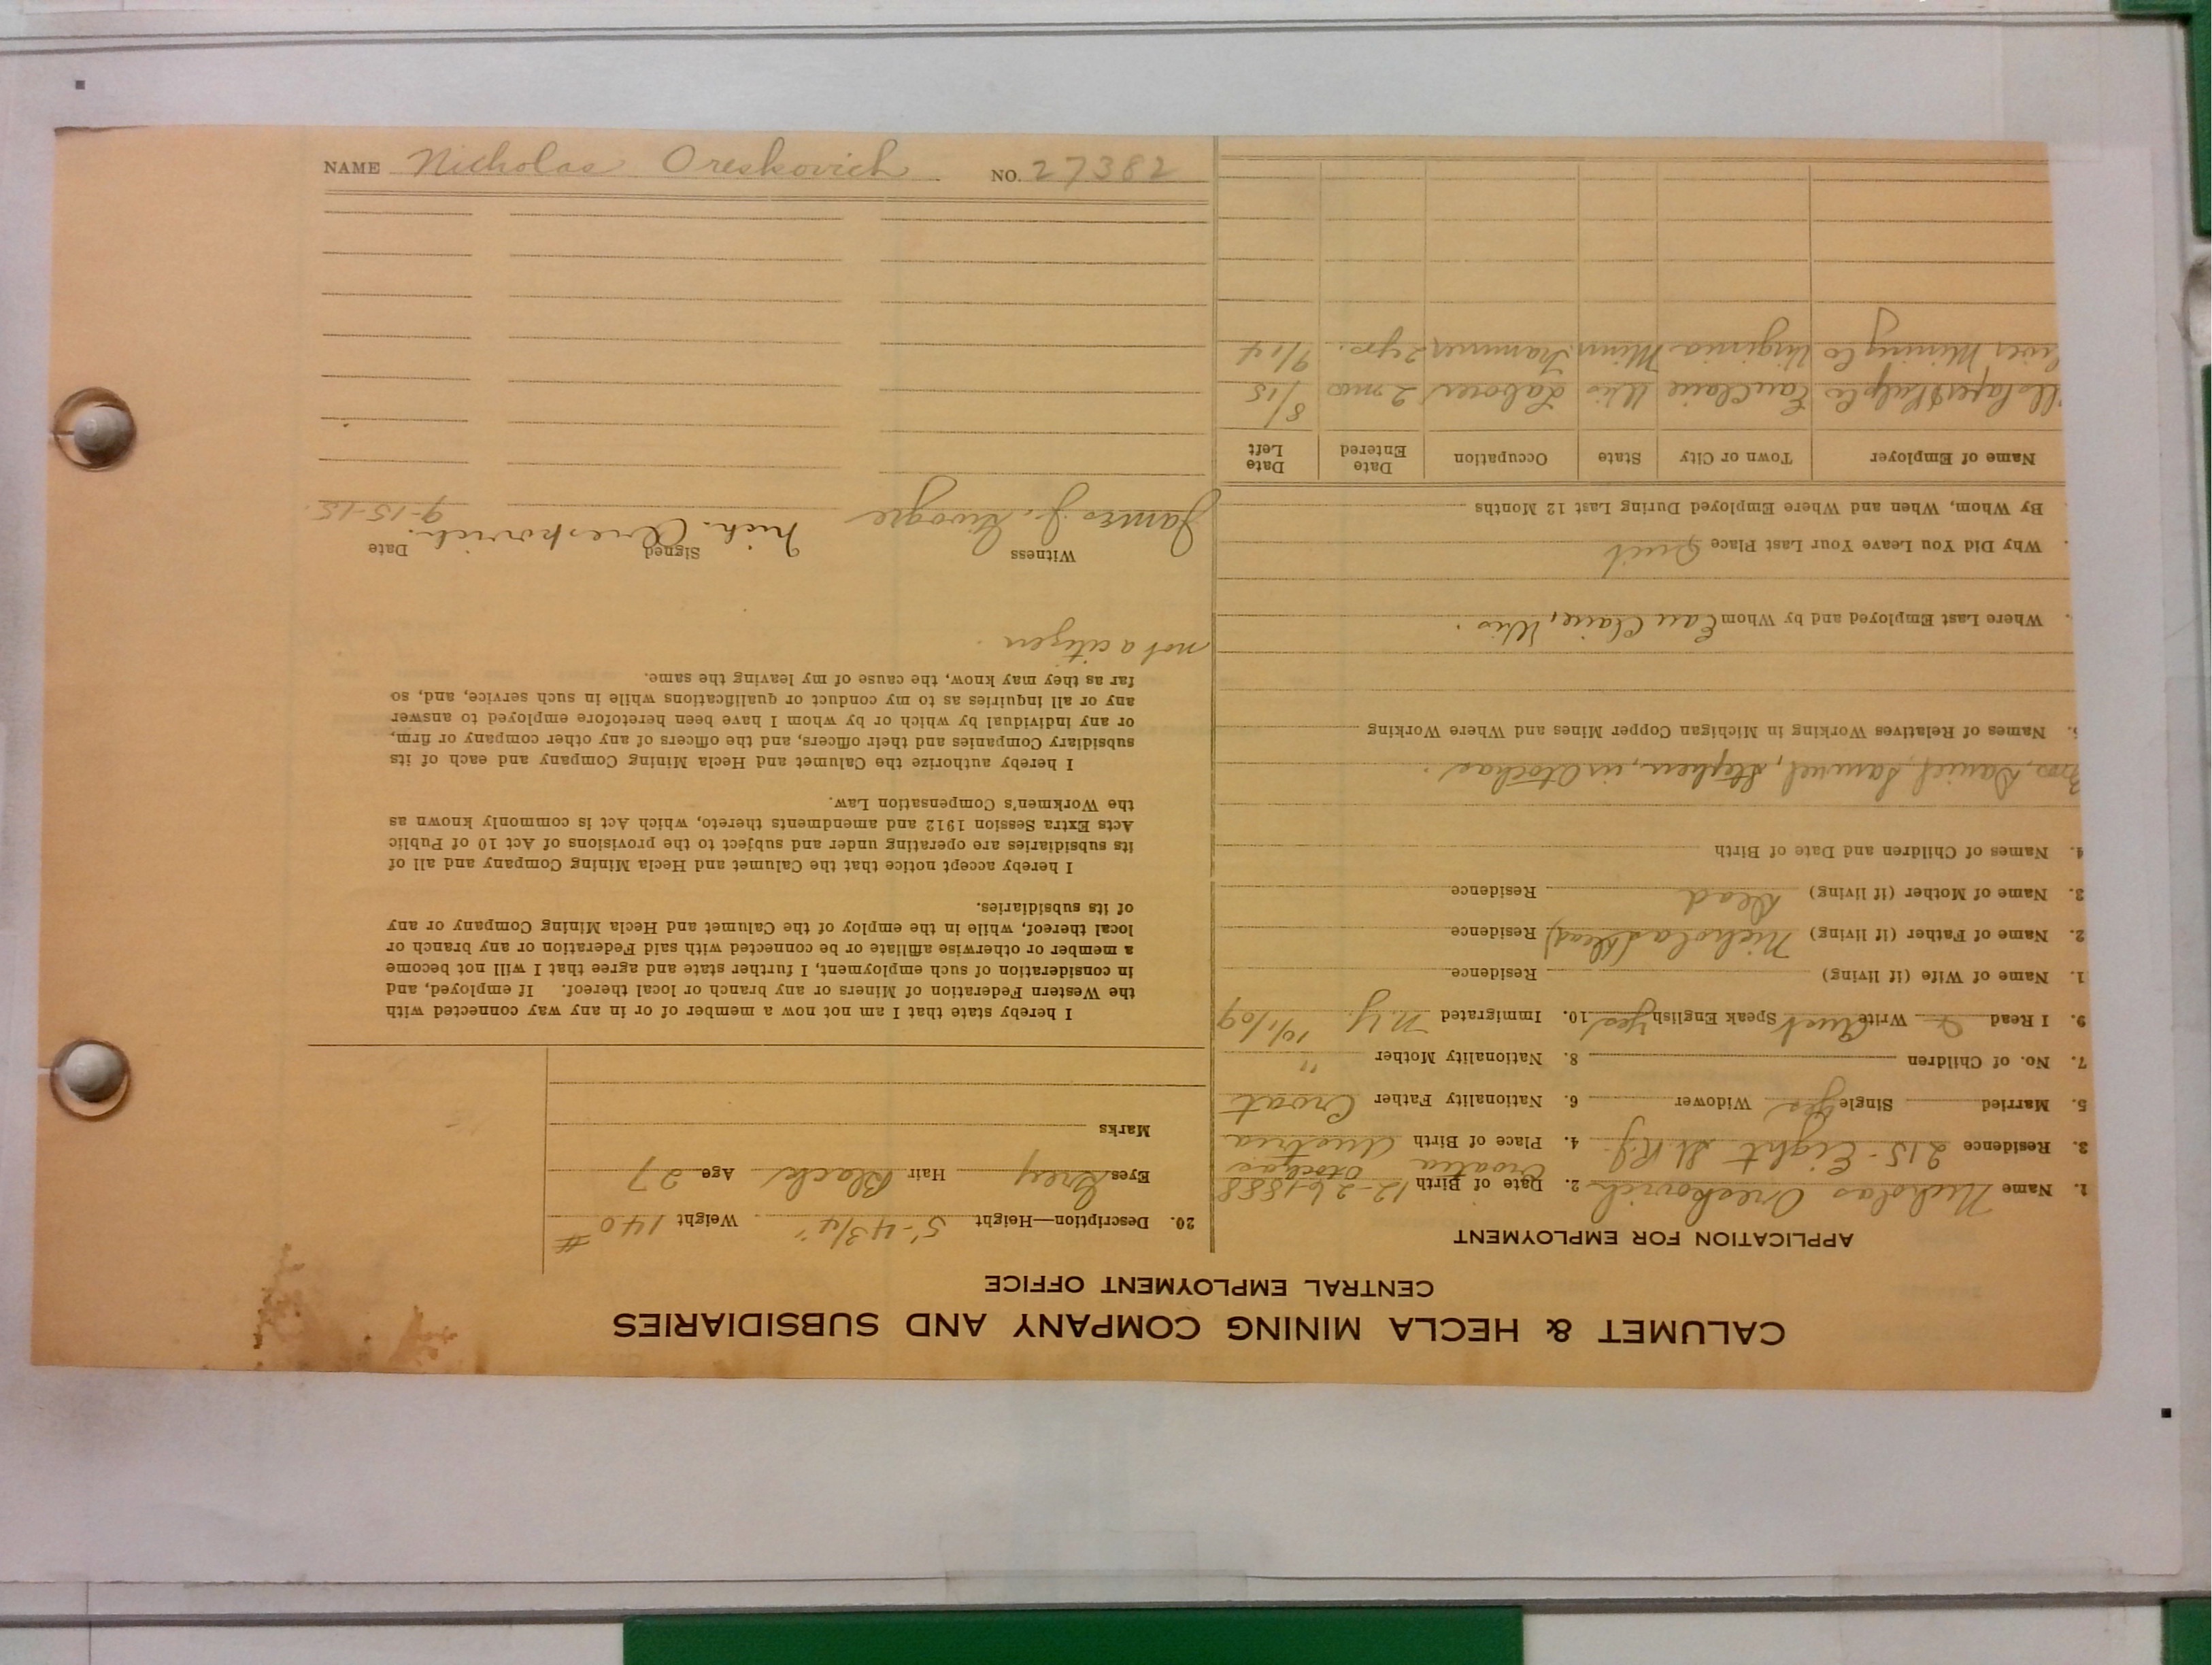 CALUMET & HECLA MINING COMPANY AND SUBSIDIARIES
CENTRAL EMPLOYMENT OFFICE
APPLICATION FOR EMPLOYMENT
1. Name Nicholas Oreskovich 2. Date of Birth 12-26-1888
Croatia Otochac
3. Residence 215-Eight St R.J. 4. Place of Birth Austria
5. Married Single Yes Widower 6. Nationality Father Croat
7. No. of Children 8. Nationality Mother "
9. I Read & Write Aust Speak English Yes 10. Immigrated N.Y. 10/1/09
1. Name of Wife (if living) Residence
2. Name of Father (if living) Nicholas (Dead) Residence
3. Name of Mother (if living) Dead Residence
4. Names of Children and Date of Birth
Bros, Daniel, Samuel, Stephen, in Otochac.
5. Names of Relatives Working in Michigan Copper Mines and Where Working
Where Last Employed and by Whom Eau Claire, Wis.
Why Did You Leave Your Last Place Quit
By Whom, When and Where Employed During Last 12 Months
Name of Employer Town or City State Occupation Date Entered Date Left
Paper & Pulp Co Eau Claire Wis Laborer 2 mos 8/15
Mining Co Virginia Minn Trammer 2 yrs. 9/14
20. Description—Height 5'-4 3/4" Weight 140 #
Eyes Grey Hair Black Age 27
Marks
I hereby state that I am not now a member of or in any way connected with
the Western Federation of Miners or any branch or local thereof. If employed, and
in consideration of such employment, I further state and agree that I will not become
a member or otherwise affiliate or be connected with said Federation or any branch or
local thereof, while in the employ of the Calumet and Hecla Mining Company or any
of its subsidiaries.
I hereby accept notice that the Calumet and Hecla Mining Company and all of
its subsidiaries are operating under and subject to the provisions of Act 10 of Public
Acts Extra Session 1912 and amendments thereto, which Act is commonly known as
the Workmen's Compensation Law.
I hereby authorize the Calumet and Hecla Mining Company and each of its
subsidiary Companies and their officers, and the officers of any other company or firm,
or any individual by which or by whom I have been heretofore employed to answer
any or all inquiries as to my conduct or qualifications while in such service, and, so
far as they may know, the cause of my leaving the same.
not a citizen.
Witness Signed Date
James J. Nich. Oreskovich. 9-15-15.
NAME Nicholas Oreskovich NO. 27382